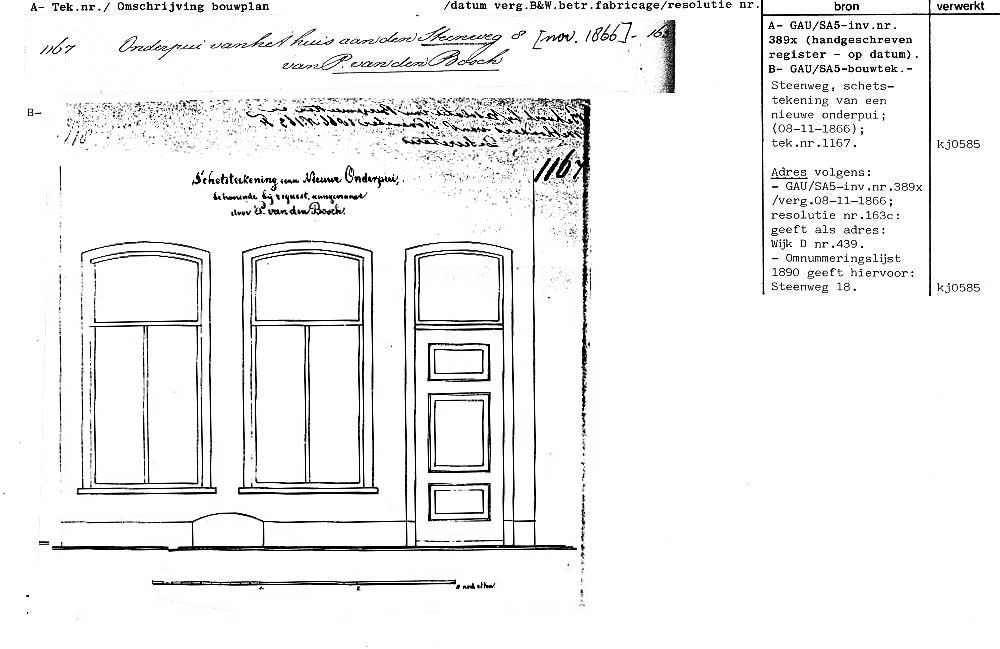 A- Tek.nr./ Omschrijving bouwplan /datum verg.B&W.betr.fabricage/resolutie nr.
bron
verwerkt
1167 Onderpui van het huis aan den Steenweg 8 [nov. 1866]- 163
van P. van den Bosch
B-
1167
Schetsteekening van Nieuwe Onderpui,
behoorende bij request, aangenomen
door P. van den Bosch.
A- GAU/SA5-inv.nr.
389x (handgeschreven
register - op datum).
B- GAU/SA5-bouwtek.-
Steenweg, schets-
tekening van een
nieuwe onderpui;
(08-11-1866);
tek.nr.1167.
kj0585
Adres volgens:
- GAU/SA5-inv.nr.389x
/verg.08-11-1866;
resolutie nr.163c:
geeft als adres:
Wijk D nr.439.
- Omnummeringslijst
1890 geeft hiervoor:
Steenweg 18.
kj0585